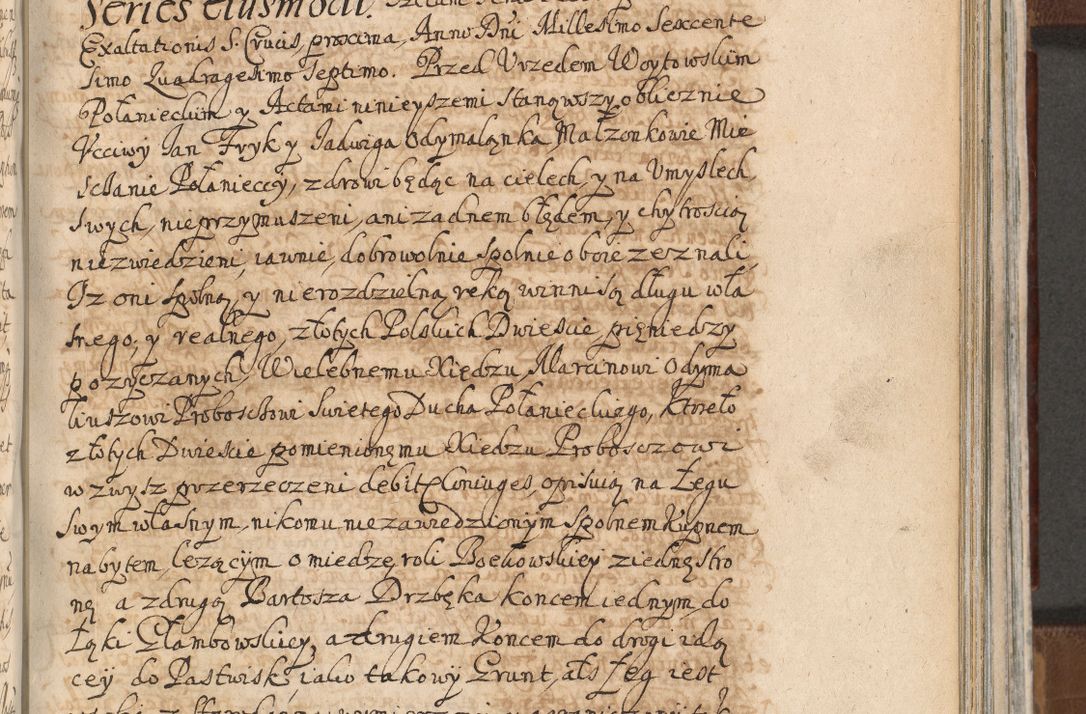 Series eiusmodi.
Exaltationis S. Crucis, proxima, Anno Dni Millesimo Sexcente
simo Quadragesimo septimo. Przed Urzędem Woytowskim
Połanieckim y Actami ninieyszemi stanąwszy oblicznie
Vcciwy Jan Fryk y Jadwiga Odymaląnka Małzonkowie Mie
sczanie Połanieccy, zdrowi będąc na cielech, y na Umyslech
swych, nieprzymuszeni, ani zadnem błędem, y chytroscią
niezwiedzieni, iawnie, dobrowolnie spolnie oboie zeznali,
Iz oni spolną y nierozdzielną ręką winni są długu wła
snego, y realnego, złotych Polskich Dwiescie pięniedzy
pozyczanych, Wielebnemu Xiędzu, Marcinowi Odyma
liuszowi Proboscżowi Swiętego Ducha Połanieckiego, Ktore to
złotych Dwiescie pomienionęmu Xiędzu Proboszczowi
wzwysz przerzeczeni debit. Coniuges, opisuią na Łęgu
swym własnym, nikomu niezawiedzionym spolnem Kupnem
nabytem, lezącym o miedzę roli Bockowskiey z iednę stro
nę a z drugą Bartosza Drzbęka koncem iednym do
Łąki Głambowskiey, a drugiem Koncem do drogi idą
cey do Pastwisk, iako takowy Grunt, als Łęg iest